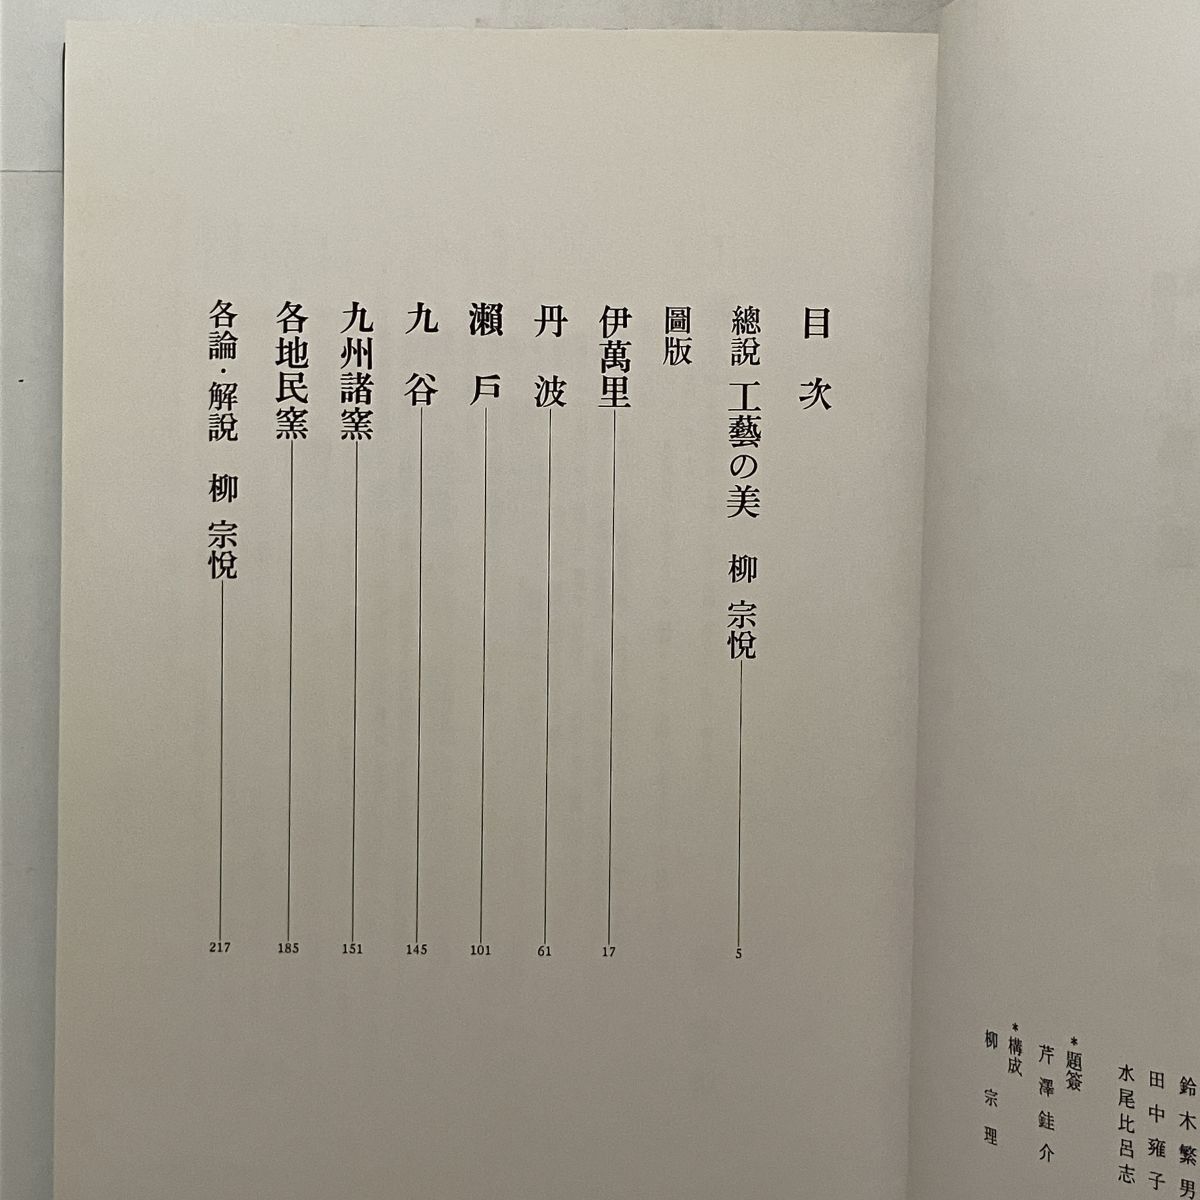 鈴木繁男
田中雍子
水尾比呂志
*題簽
芹澤銈介
*構成
柳宗理
目次
總說 工藝の美 柳宗悅 5
圖版
伊萬里 17
丹波 61
瀨戶 101
九谷 145
九州諸窯 151
各地民窯 185
各論・解說 柳宗悅 217